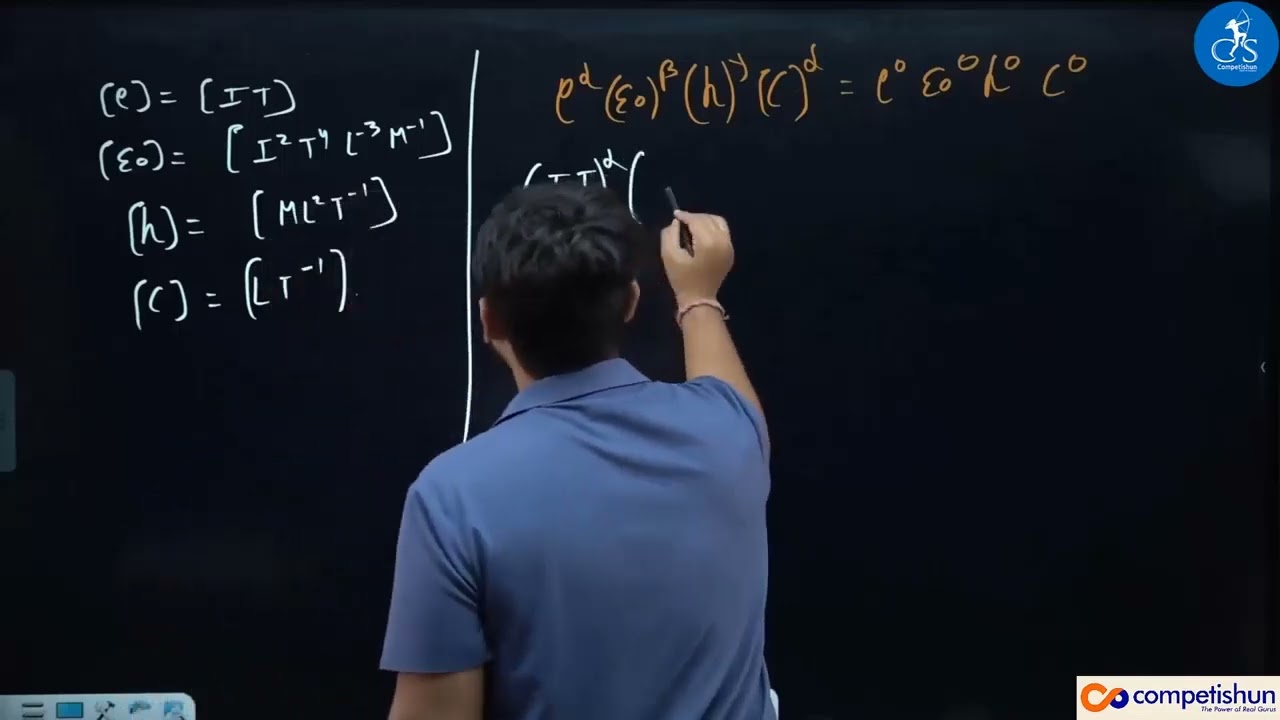 [e] = [IT]
[ε₀] = [I² T⁴ L⁻³ M⁻¹]
[h] = [ML² T⁻¹]
[C] = [L T⁻¹]
e^α (ε₀)^β (h)^γ (C)^α = e⁰ ε₀⁰ h⁰ C⁰
(IT)^α (
CS
Competishun
competishun
The Power of Real Gurus